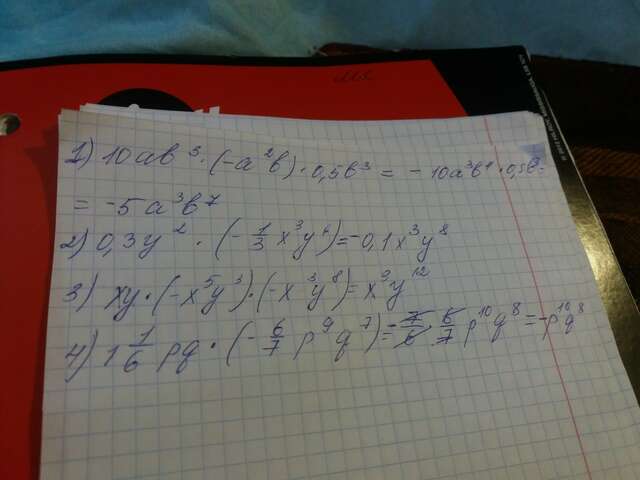 1) 10ab³·(-a²b)·0,5b³ = -10a³b⁴·0,5b³=
= -5a³b⁷
2) 0,3y²·(-1/3 x³y⁶)=-0,1x³y⁸
3) xy·(-x⁵y³)·(-x³y⁸)=x⁹y¹²
4) 1 1/6 pq·(-6/7 p⁹q⁷)=-7/6·6/7 p¹⁰q⁸=-p¹⁰q⁸